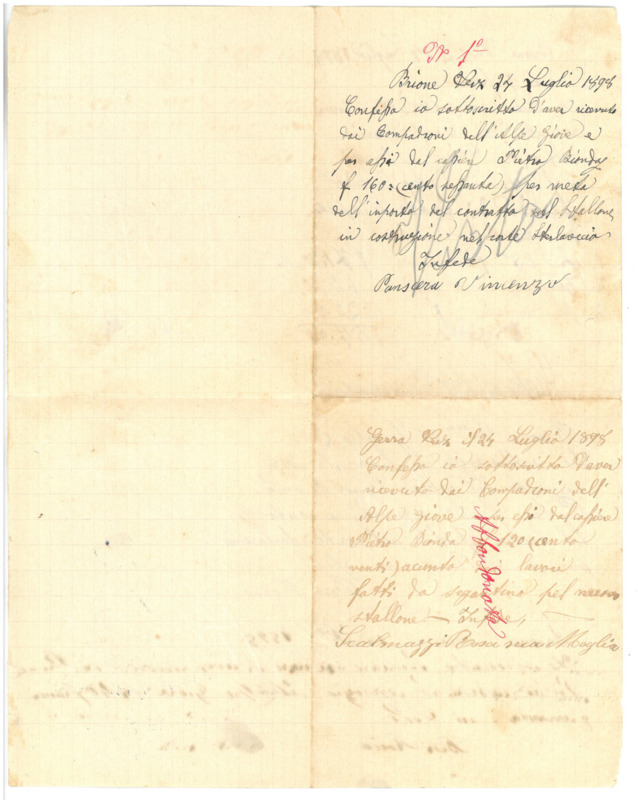 N 1º
Brione Verz 24 Luglio 1898
Confesso io sottoscritto d'aver ricevuto
dai Compadroni dell'Alpe Gioie e
per essi dal cassiere Pietro Bionda
f 160= (cento sessanta) per metà
dell'inporto del contratto del Stallone
in costruzione nel corte
In fede
Pansera Vincenzo
Gerra Verz il 24 Luglio 1898
Confesso io sottoscritto d'aver
ricevuto dai Compadroni dell'
Alpe Giove per essi dal cassiere
Pietro Bionda 120 cento
venti acconto lavori
fatti da segantino pel nuovo
stallone — In fede
Scalmazzi Moglia
Abbandonata